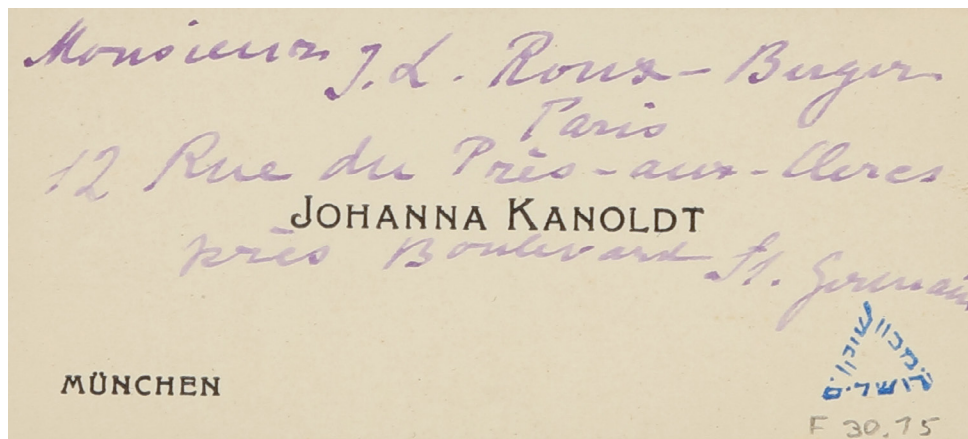 Monsieur J. L. Roux-Berger
Paris
12 Rue du Près-aux-Clercs
JOHANNA KANOLDT
près Boulevard St. Germain
MÜNCHEN
מכון שוקן ירושלים
F 30.15